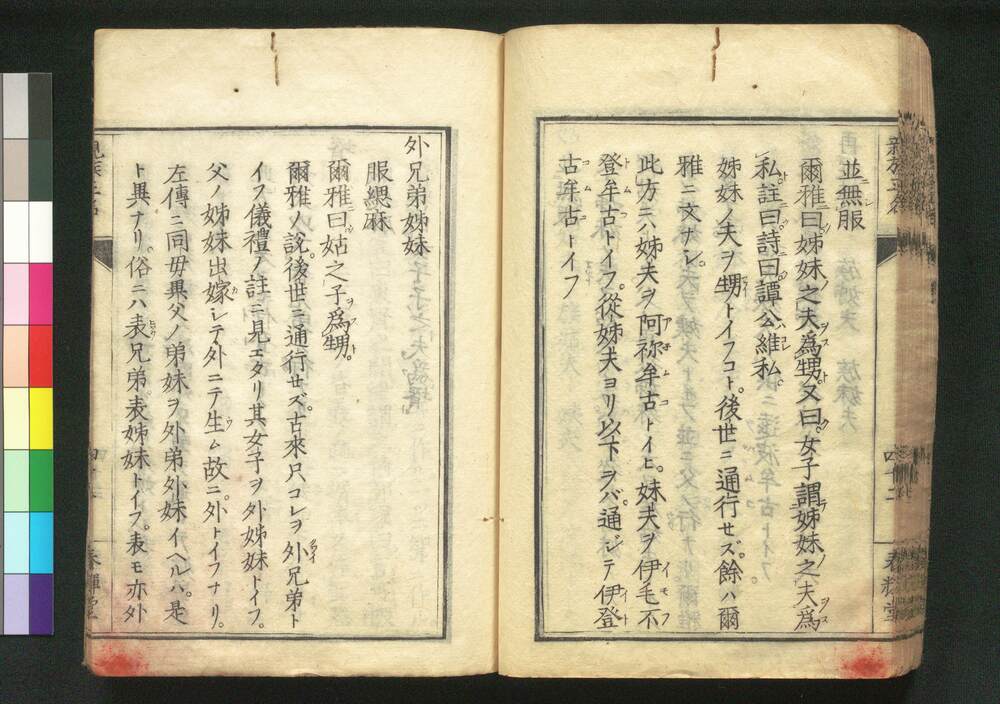 並無服
爾雅曰姊妹之夫為甥又曰女子謂姊妹之夫為
私註曰詩曰譚公維私
姊妹ノ夫ヲ甥トイフコト後世ニ通行セズ餘ハ爾
雅ニ文ナシ
此方ニハ姊夫ヲ阿祢牟古トイヒ妹夫ヲ伊毛不
登牟古トイフ從姊夫ヨリ以下ヲバ通シテ伊登
古牟古トイフ
四十二
春輝堂
外兄弟姊妹
服緦麻
爾雅曰姑之子為甥
爾雅ノ說後世ニ通行セズ古來只コレヲ外兄弟ト
イフ儀禮ノ註ニ見エタリ其女子ヲ外姊妹トイフ
父ノ姊妹出嫁シテ外ニテ生ム故ニ外トイフナリ
左傳ニ同母異父ノ弟妹ヲ外弟外妹イヘルハ是
ト異ナリ俗ニハ表兄弟表姊妹トイフ表モ亦外